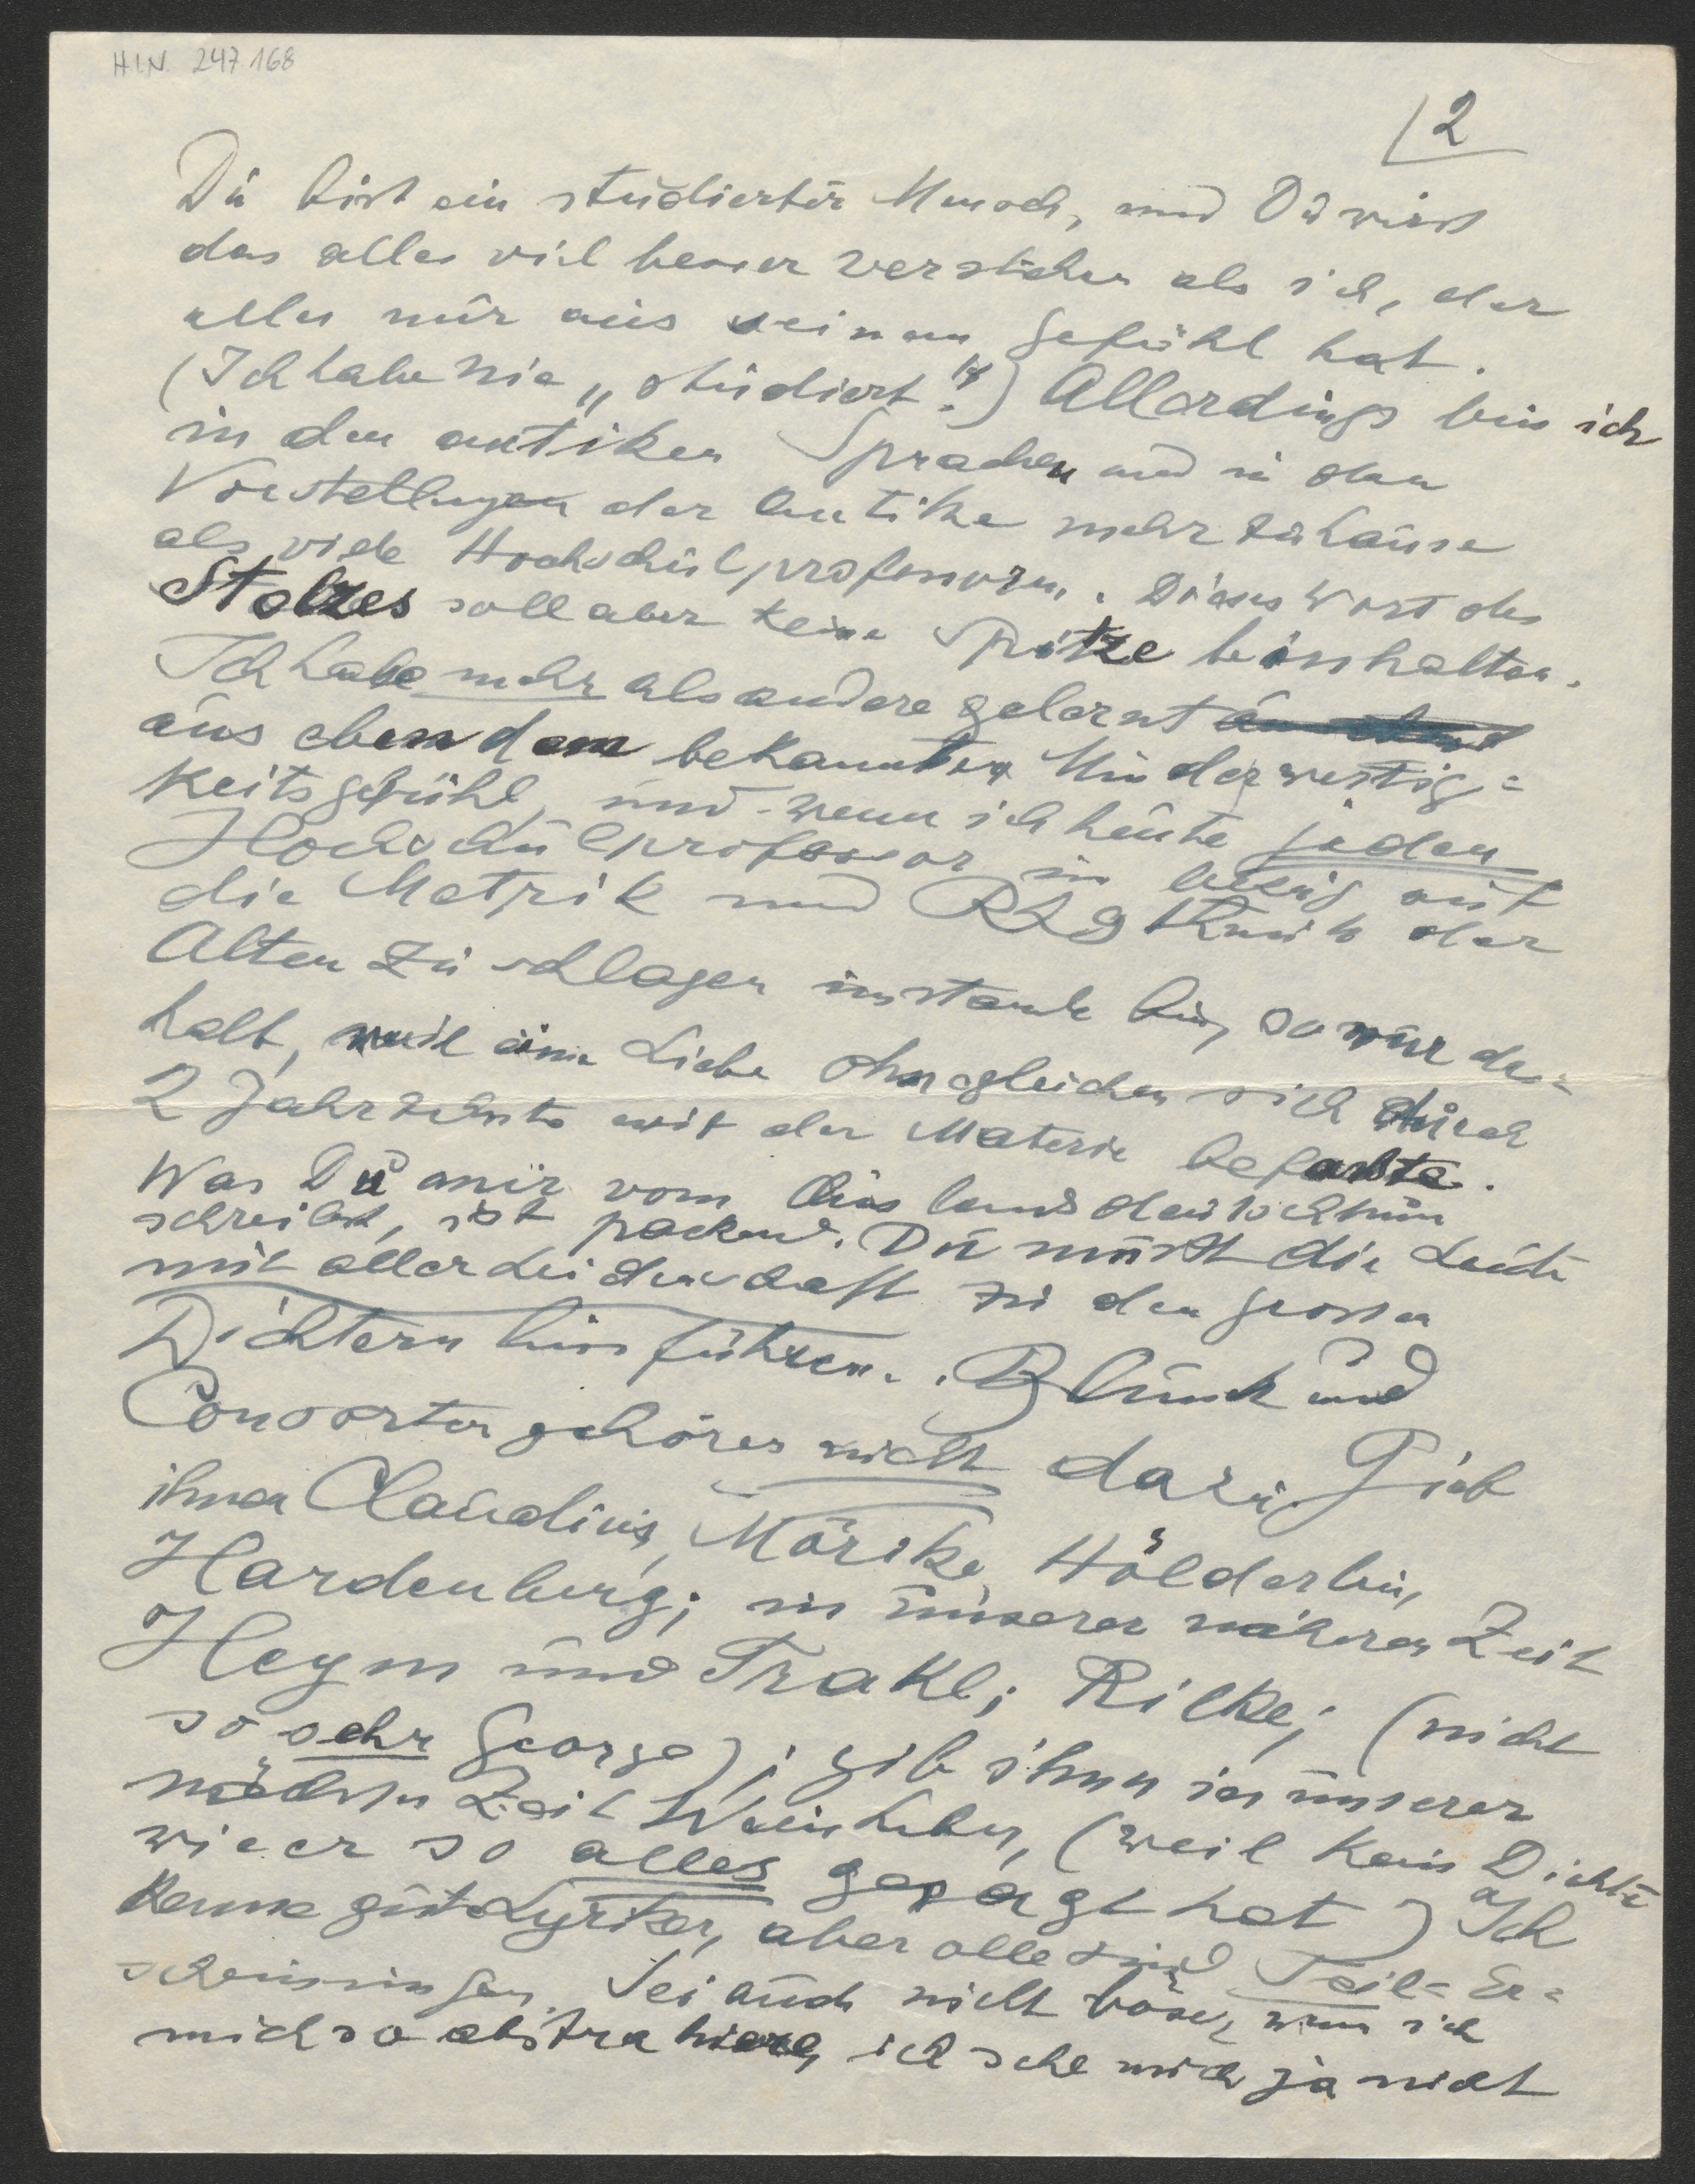 H.I.N. 247.168
2
Du bist ein studierter Mensch, und Du wirst
das alles viel besser verstehen als ich, der
alles nur aus seinem Gefühl hat.
(Ich habe nie „studiert“!) Allerdings bin ich
in den antiken Sprachen und in den
Vorstellungen der Antike mehr zuhause
als viele Hochschulprofessoren. Dieses Wort des
Stolzes soll aber keine Spitze beinhalten.
Ich habe mehr als andere gelernt
aus eben dem bekannten Minderwertig=
keitsgefühl, und wenn ich heute jeden
Hochschulprofessor in bezug auf
die Metrik und Rhythmik der
Alten zu schlagen imstande bin, so nur des=
halb, weil eine Liebe ohnegleichen sich durch
2 Jahrzehnte mit der Materie befasste.
Was Du mir vom Auslandsdeutschtum
schreibst, ist packend. Du musst die Leute
mit aller Leidenschaft zu den grossen
Dichtern hinführen. Blunck und
Consorten gehören nicht dazu. Gieb
ihnen Claudius, Mörike, Hölderlin,
Hardenberg; in unserer näheren Zeit
Heym und Trakl; Rilke; (nicht
so sehr George); gib ihnen in unserer
nächsten Zeit Weinheber, (weil kein Dichter
wie er so alles gesagt hat) Ich
kenne gute Lyriker, aber alle sind Teil=Er=
scheinungen. Sei auch nicht böse, wenn ich
mich so abstrahiere, ich sehe mich ja nicht